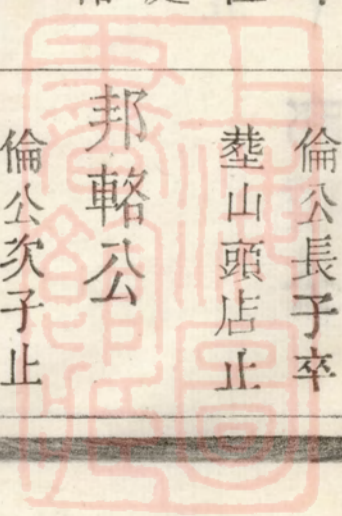 倫公長子卒
塟山頭店止
邦輅公
倫公次子止